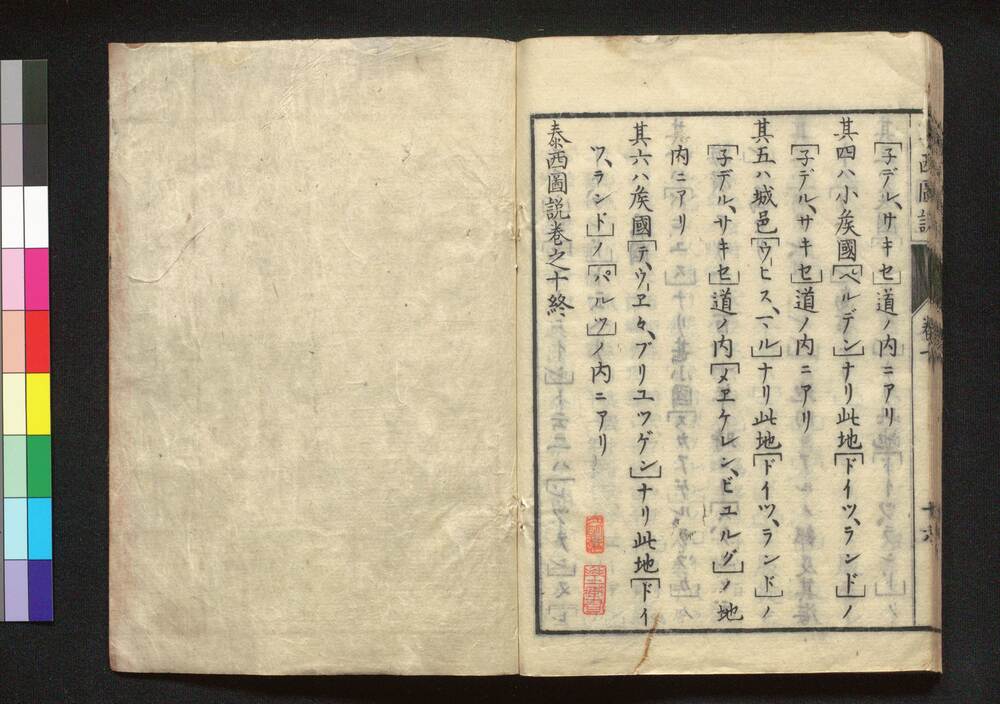 「子デル、サキセ」道ノ内ニアリ
其四ハ小矦國「ベルデン」ナリ此地「ドイツ、ランド」ノ
「子デル、サキセ」道ノ内ニアリ
其五ハ城邑「ウ井ス、マル」ナリ此地「ドイツ、ランド」ノ
「子デル、サキセ」道ノ内「メヱケレン、ビユルグ」ノ地
内ニアリ
其六ハ矦國「テ、ウヱ々、ブリユツゲン」ナリ此地「ドイ
ツ、ランド」ノ「パルツ」ノ内ニアリ
泰西圖説卷之十終